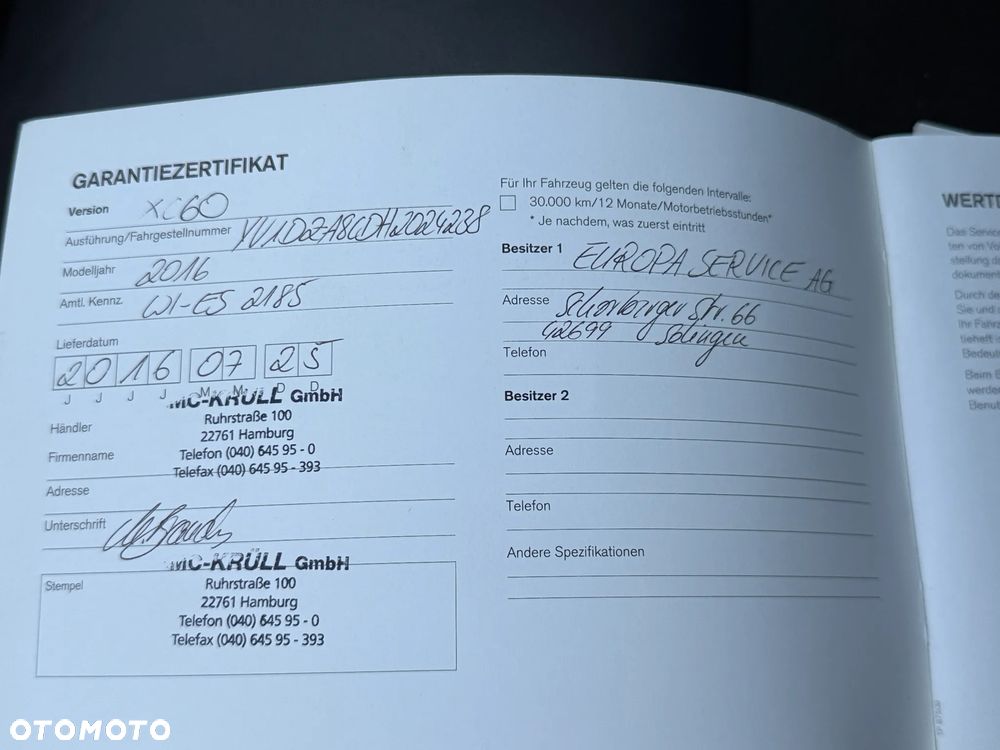 GARANTIEZERTIFIKAT
Version XC60
Ausführung/Fahrgestellnummer YV1DZA8CDH2024238
Modelljahr 2016
Amtl. Kennz. WI-ES 2185
Lieferdatum
2016 07 25
J J J J M M D D
MC-KRÜLL GmbH
Ruhrstraße 100
Händler
22761 Hamburg
Firmenname
Telefon (040) 645 95 - 0
Telefax (040) 645 95 - 393
Adresse
Unterschrift
MC-KRÜLL GmbH
Stempel
Ruhrstraße 100
22761 Hamburg
Telefon (040) 645 95 - 0
Telefax (040) 645 95 - 393
Für Ihr Fahrzeug gelten die folgenden Intervalle:
30.000 km/12 Monate/Motorbetriebsstunden*
* Je nachdem, was zuerst eintritt
Besitzer 1 EUROPA SERVICE AG
Adresse Str. 66
42699 Solingen
Telefon
Besitzer 2
Adresse
Telefon
Andere Spezifikationen
WERTD
Das Service
ten von Vo
stellung de
dokument
Durch de
Sie und
Ihr Fahrz
tieheft is
Bedeut
Beim E
werden
Benut
OTOMOTO